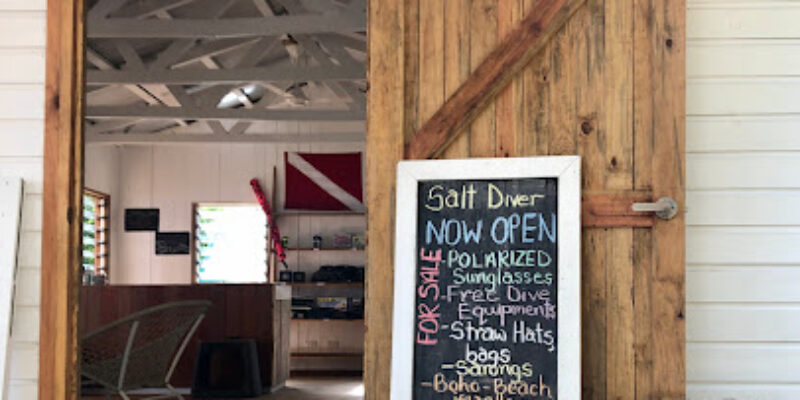 Salt Diver
NOW OPEN
FOR SALE
-POLARIZED
Sunglasses
-Free Dive
Equipments
-Straw Hats,
bags
-Sarongs
-Boho-Beach